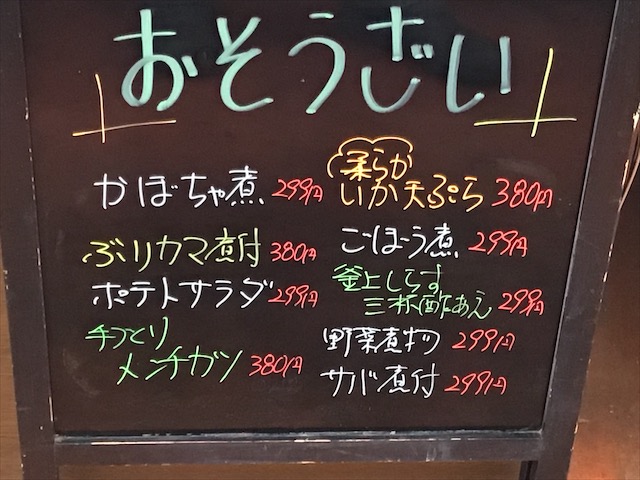 おそうざい
かぼちゃ煮 299円
ぶりカマ煮付 380円
ポテトサラダ 299円
手づくり
メンチカツ 380円
柔らか
いか天ぷら 380円
ごぼう煮 299円
釜上しらす
三杯酢あえ 299円
野菜煮物 299円
サバ煮付 299円